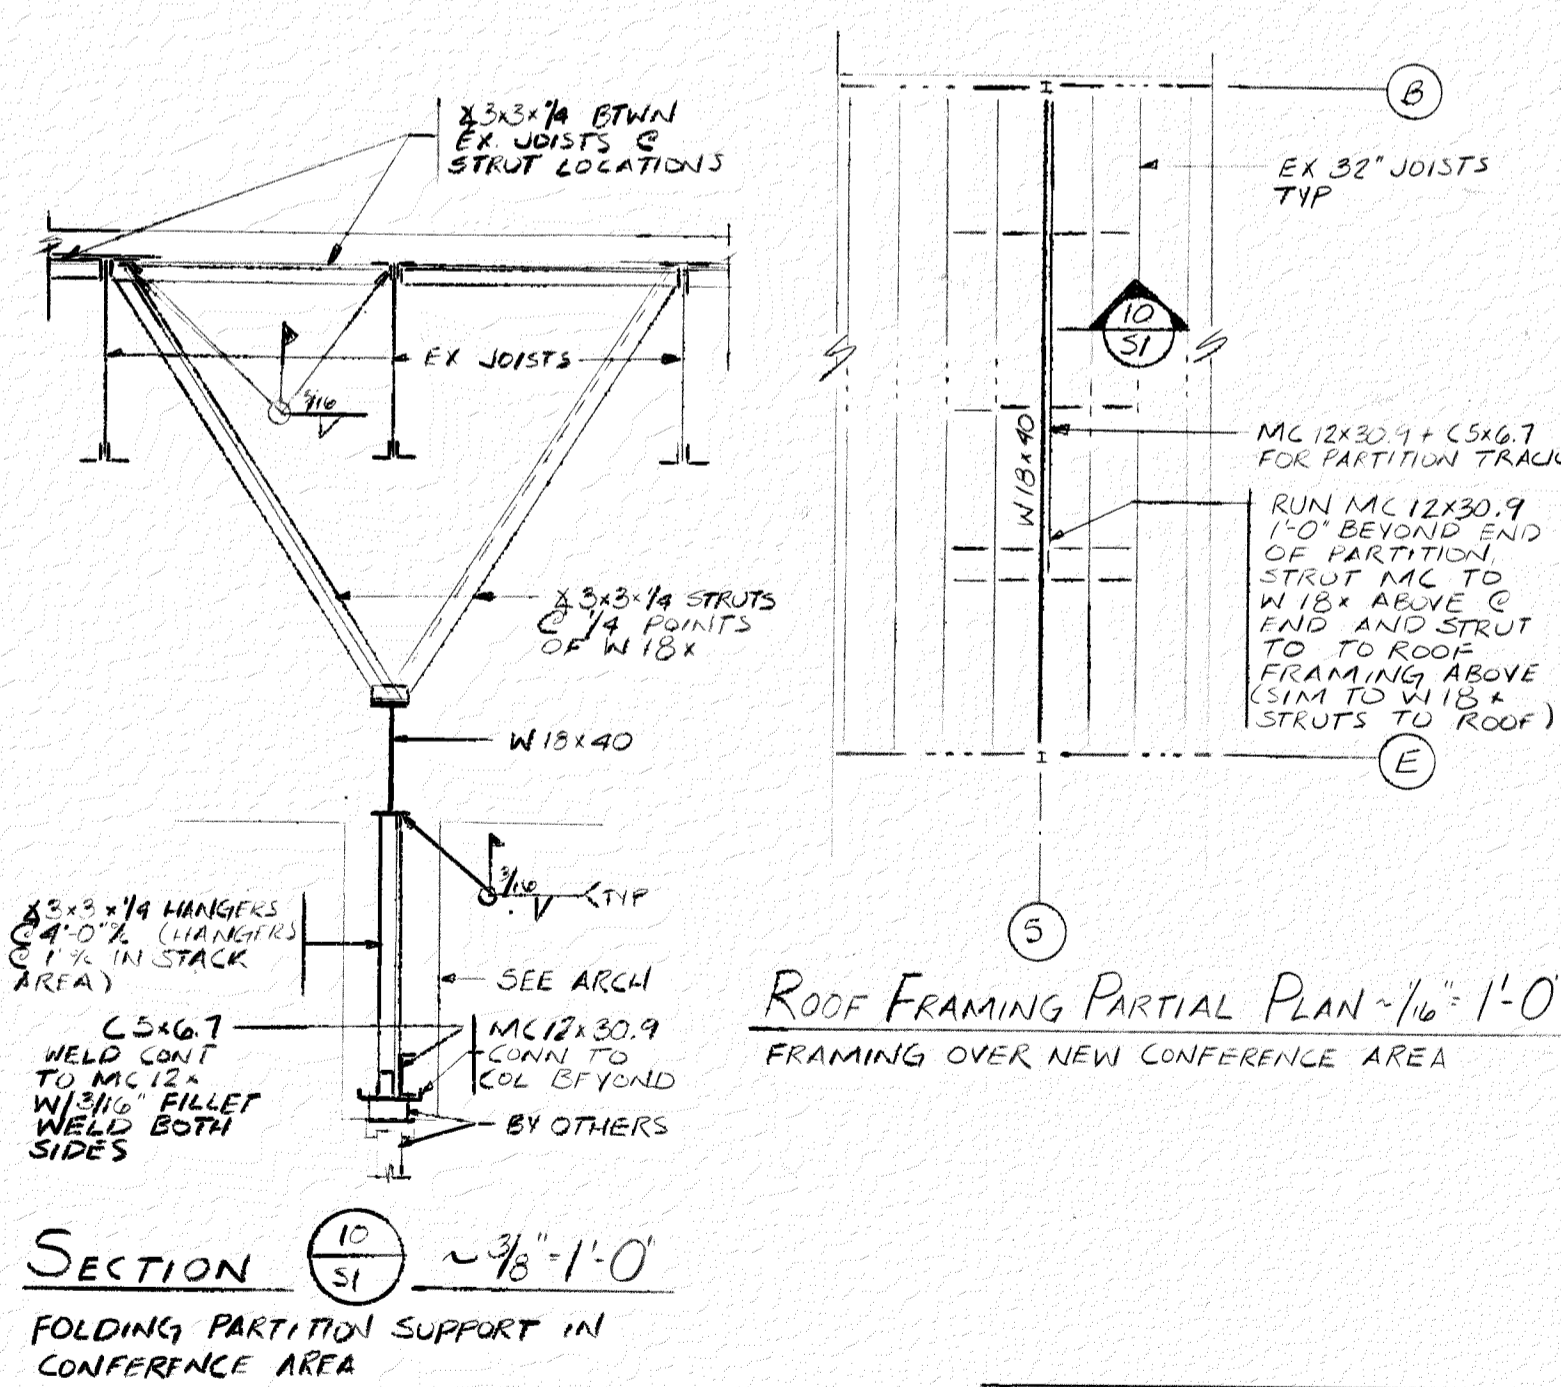 ∠3x3x1/4 BTWN
EX. JOISTS @
STRUT LOCATIONS
EX JOISTS
3/16
∠3x3x1/4 STRUTS
@ 1/4 POINTS
OF W18x
W18x40
3/16
TYP
∠3x3x1/4 HANGERS
@ 4'-0" % (HANGERS
@ 1' % IN STACK
AREA)
SEE ARCH
C5x6.7
WELD CONT
TO MC12x
W/3/16" FILLET
WELD BOTH
SIDES
MC12x30.9
CONN TO
COL BEYOND
BY OTHERS
SECTION 10 ~ 3/8"=1'-0"
S1
FOLDING PARTITION SUPPORT IN
CONFERENCE AREA
B
EX 32" JOISTS
TYP
10
S1
W18x40
MC12x30.9 + C5x6.7
FOR PARTITION TRACK
RUN MC12x30.9
1'-0" BEYOND END
OF PARTITION,
STRUT MC TO
W18x ABOVE @
END AND STRUT
TO TO ROOF
FRAMING ABOVE
(SIM TO W18x
STRUTS TO ROOF)
E
5
ROOF FRAMING PARTIAL PLAN ~ 1/16"=1'-0"
FRAMING OVER NEW CONFERENCE AREA